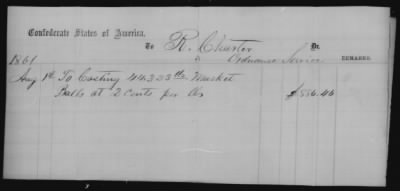 Confederate States of America,
To R. Chester Dr.
Ordnance Service REMARKS.
1861
Aug 1st To Casting 44323 lbs Musket
Balls at 2 Cents per lbs $886.46